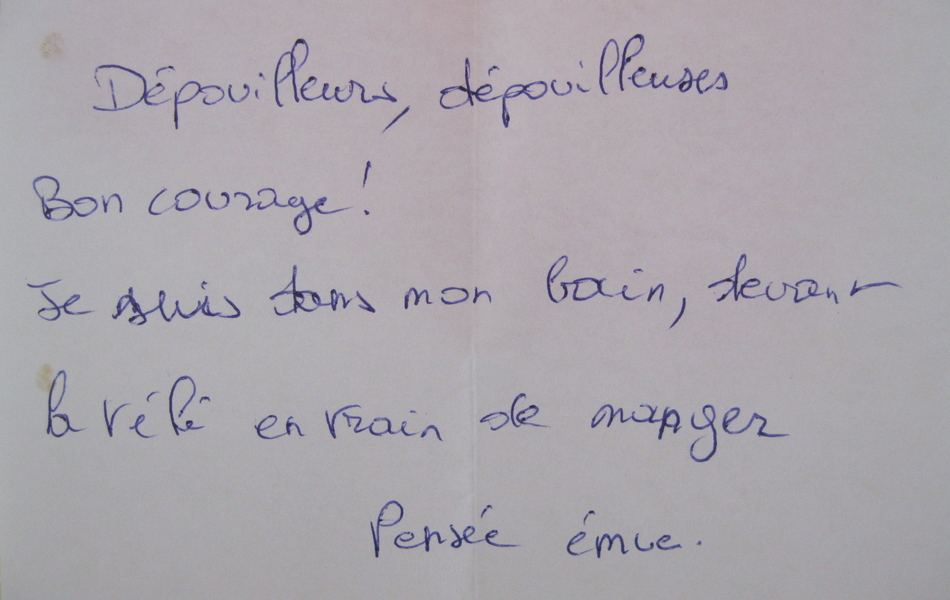 Dépouilleurs, dépouilleuses
Bon courage!
Je suis dans mon bain, devant
la télé en train de manger
Pensée émue.